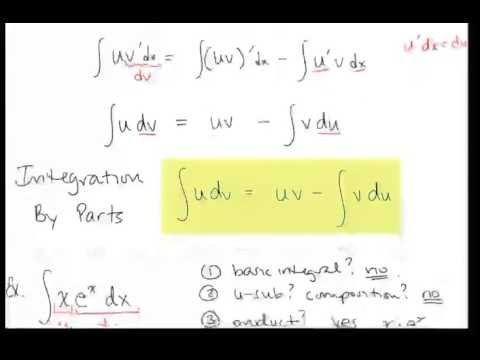 ∫ u v' dx = ∫ (uv)' dx − ∫ u' v dx    u' dx = du
dv
∫ u dv = uv − ∫ v du
Integration
By Parts
∫ u dv = uv − ∫ v du
Ex. ∫ x e^x dx
① basic integral? no.
② u-sub? composition? no
③ product? yes x·e^x